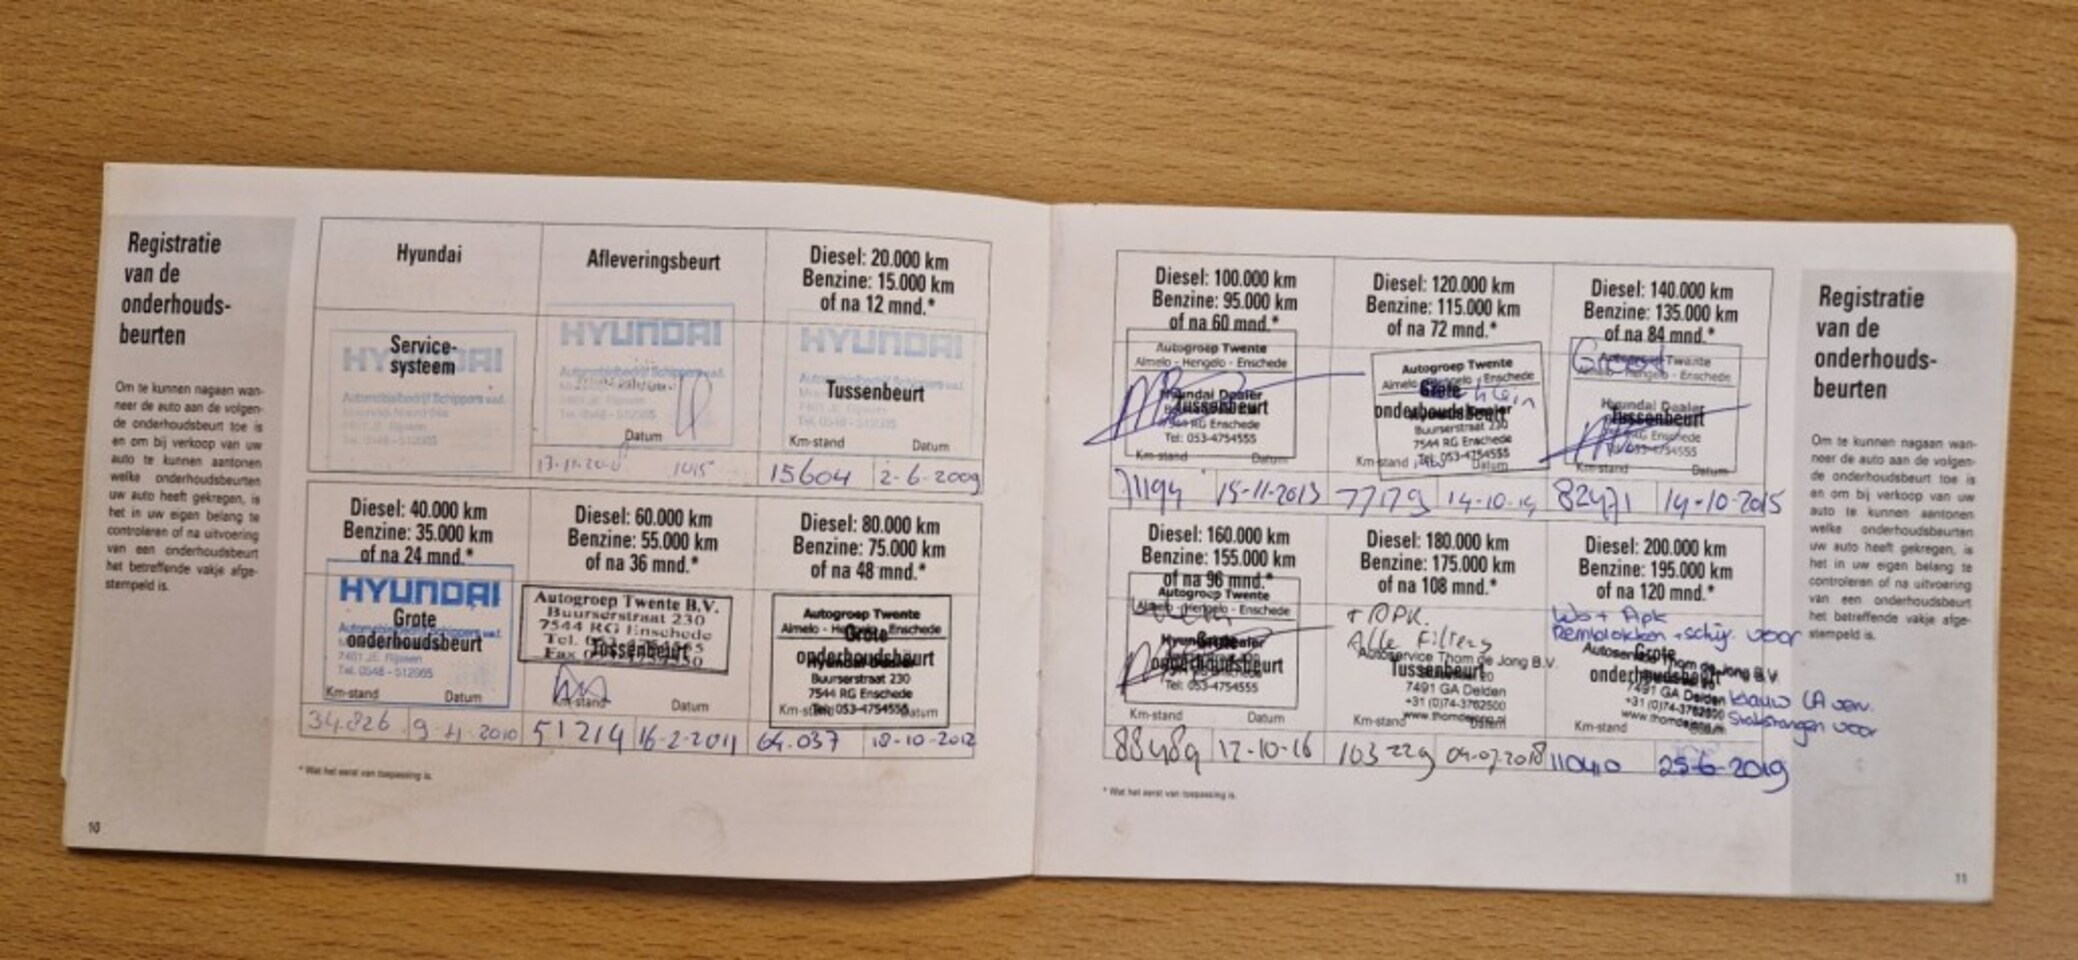 Registratie
van de
onderhouds-
beurten
Om te kunnen nagaan wan-
neer de auto aan de volgen-
de onderhoudsbeurt toe is
en om bij verkoop van uw
auto te kunnen aantonen
welke onderhoudsbeurten
uw auto heeft gekregen, is
het in uw eigen belang te
controleren of na uitvoering
van een onderhoudsbeurt
het betreffende vakje afge-
stempeld is.
Hyundai
Service-
systeem
HYUNDAI
Automobielbedrijf Schippers
Tel. 0548 - 512065
Afleveringsbeurt
HYUNDAI
Automobielbedrijf Schippers
Datum
Diesel: 20.000 km
Benzine: 15.000 km
of na 12 mnd.*
HYUNDAI
Tussenbeurt
Km-stand Datum
15604 2-6-2009
Diesel: 40.000 km
Benzine: 35.000 km
of na 24 mnd.*
HYUNDAI
Grote
onderhoudsbeurt
7461 JE Rijssen
Tel. 0548 - 512065
Km-stand Datum
34.826 9-11-2010
Diesel: 60.000 km
Benzine: 55.000 km
of na 36 mnd.*
Autogroep Twente B.V.
Buurserstraat 230
7544 RG Enschede
Tussenbeurt
Km-stand Datum
51214 16-2-2011
Diesel: 80.000 km
Benzine: 75.000 km
of na 48 mnd.*
Autogroep Twente
Almelo - Hengelo - Enschede
Grote
onderhoudsbeurt
Hyundai Dealer
Buurserstraat 230
7544 RG Enschede
Km-stand Tel: 053-4754555 Datum
64.037 18-10-2012
* Wat het eerst van toepassing is.
10
Diesel: 100.000 km
Benzine: 95.000 km
of na 60 mnd.*
Autogroep Twente
Almelo - Hengelo - Enschede
Hyundai Dealer
Tussenbeurt
7544 RG Enschede
Tel: 053-4754555
Km-stand Datum
71194 15-11-2013
Diesel: 120.000 km
Benzine: 115.000 km
of na 72 mnd.*
Autogroep Twente
Almelo - Hengelo - Enschede
Grote klein
onderhoudsbeurt
Buurserstraat 230
7544 RG Enschede
Km-stand Tel: 053-4754555 Datum
77179 14-10-14
Diesel: 140.000 km
Benzine: 135.000 km
of na 84 mnd.*
Groot
Autogroep Twente
Almelo - Hengelo - Enschede
Hyundai Dealer
Tussenbeurt
RG Enschede
053-4754555
Km-stand Datum
82471 14-10-2015
Diesel: 160.000 km
Benzine: 155.000 km
of na 96 mnd.*
Autogroep Twente
Almelo - Hengelo - Enschede
Hyundai Dealer
Grote
onderhoudsbeurt
Tel: 053-4754555
Km-stand Datum
88489 12-10-16
Diesel: 180.000 km
Benzine: 175.000 km
of na 108 mnd.*
+ APK.
Alle Filters
Autoservice Thom de Jong B.V.
Tussenbeurt
7491 GA Delden
+31 (0)74-3762500
Km-stand www.thomdejong.nl Datum
103229 04-07-2018
Diesel: 200.000 km
Benzine: 195.000 km
of na 120 mnd.*
Remblokken + schij. voor
Autoservice Thom de Jong B.V.
Grote
onderhoudsbeurt
7491 GA Delden
+31 (0)74-3762500
Stabstangen voor
Km-stand Datum
110410 25-6-2019
* Wat het eerst van toepassing is.
Registratie
van de
onderhouds-
beurten
Om te kunnen nagaan wan-
neer de auto aan de volgen-
de onderhoudsbeurt toe is
en om bij verkoop van uw
auto te kunnen aantonen
welke onderhoudsbeurten
uw auto heeft gekregen, is
het in uw eigen belang te
controleren of na uitvoering
van een onderhoudsbeurt
het betreffende vakje afge-
stempeld is.
11